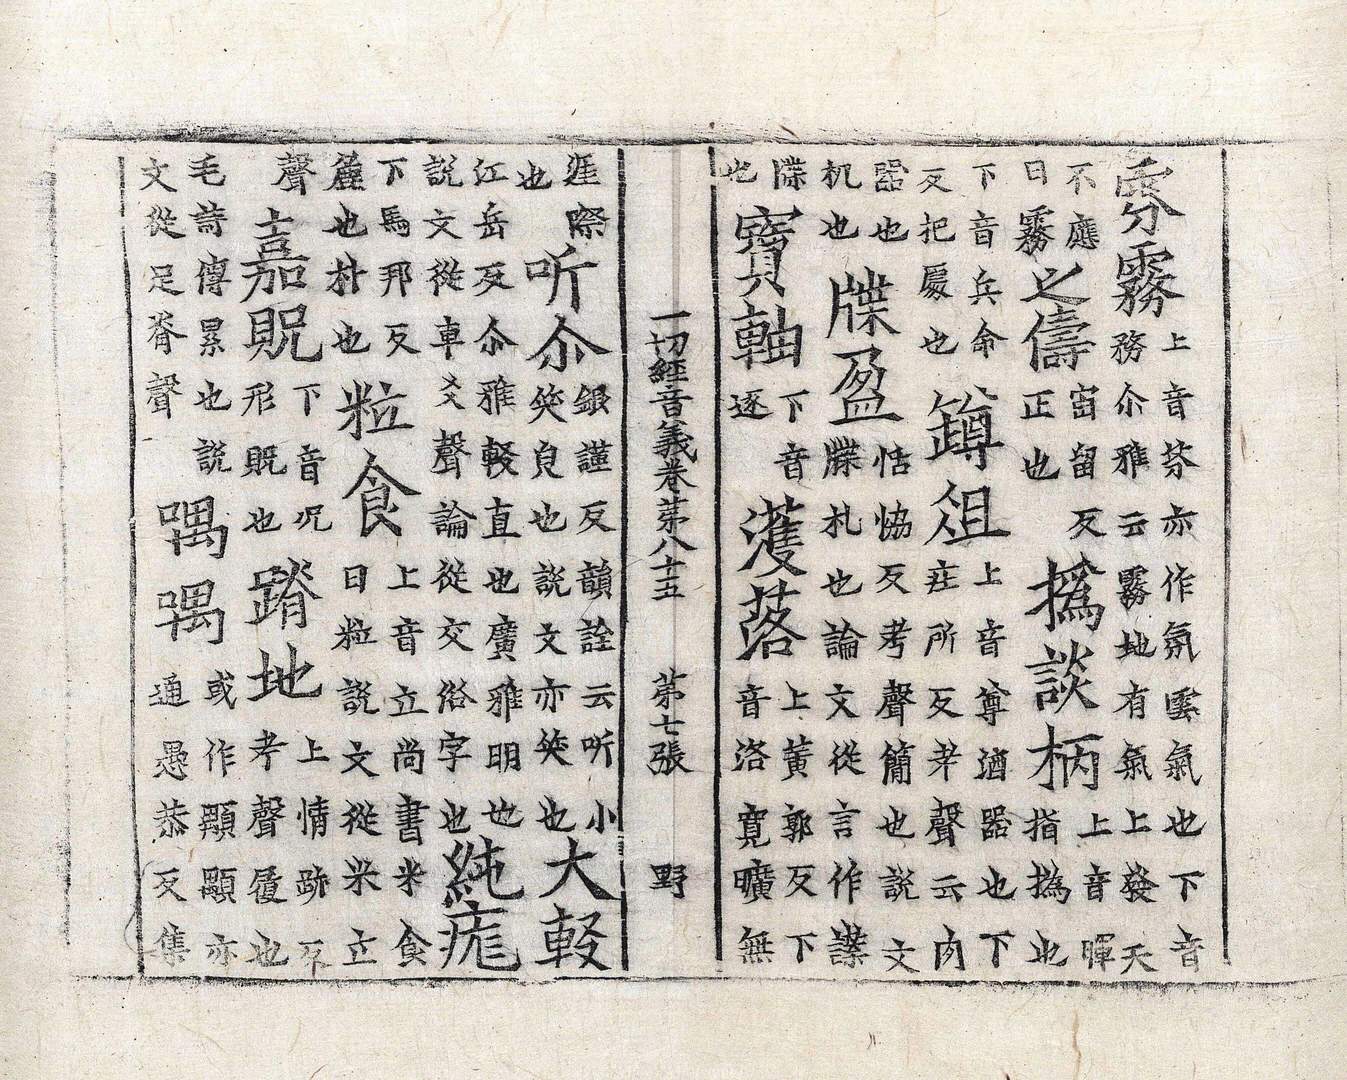 雰霧上音芬亦作氛雰氣也下音務尒雅云霧地有氣上發天
不應曰霧之儔宙留反正也撝談柄上音暉指撝也
下音兵命反把處也鐏俎上音尊酒器也下疘所反考聲云肉
器也机也牒盈恬協反考聲簡也說文牒札也論文從言作諜
牒也寶軸下音逐濩落上黃郭反下音洛寬曠無
一切經音義卷第八十五 第七張 野
涯際也听尒銀謹反韻詮云听小笑皃也說文亦笑也大較
江岳反尒雅較直也廣雅明也說文從車爻聲論從交俗字也純厖
下馬邦反麤也朴也粒食上音立尚書米食曰粒說文從米立
聲嘉貺下音况形貺也踖地上情跡反考聲履也
毛詩傳累也說文從足脊聲喁喁或作顒顒亦通愚恭反集